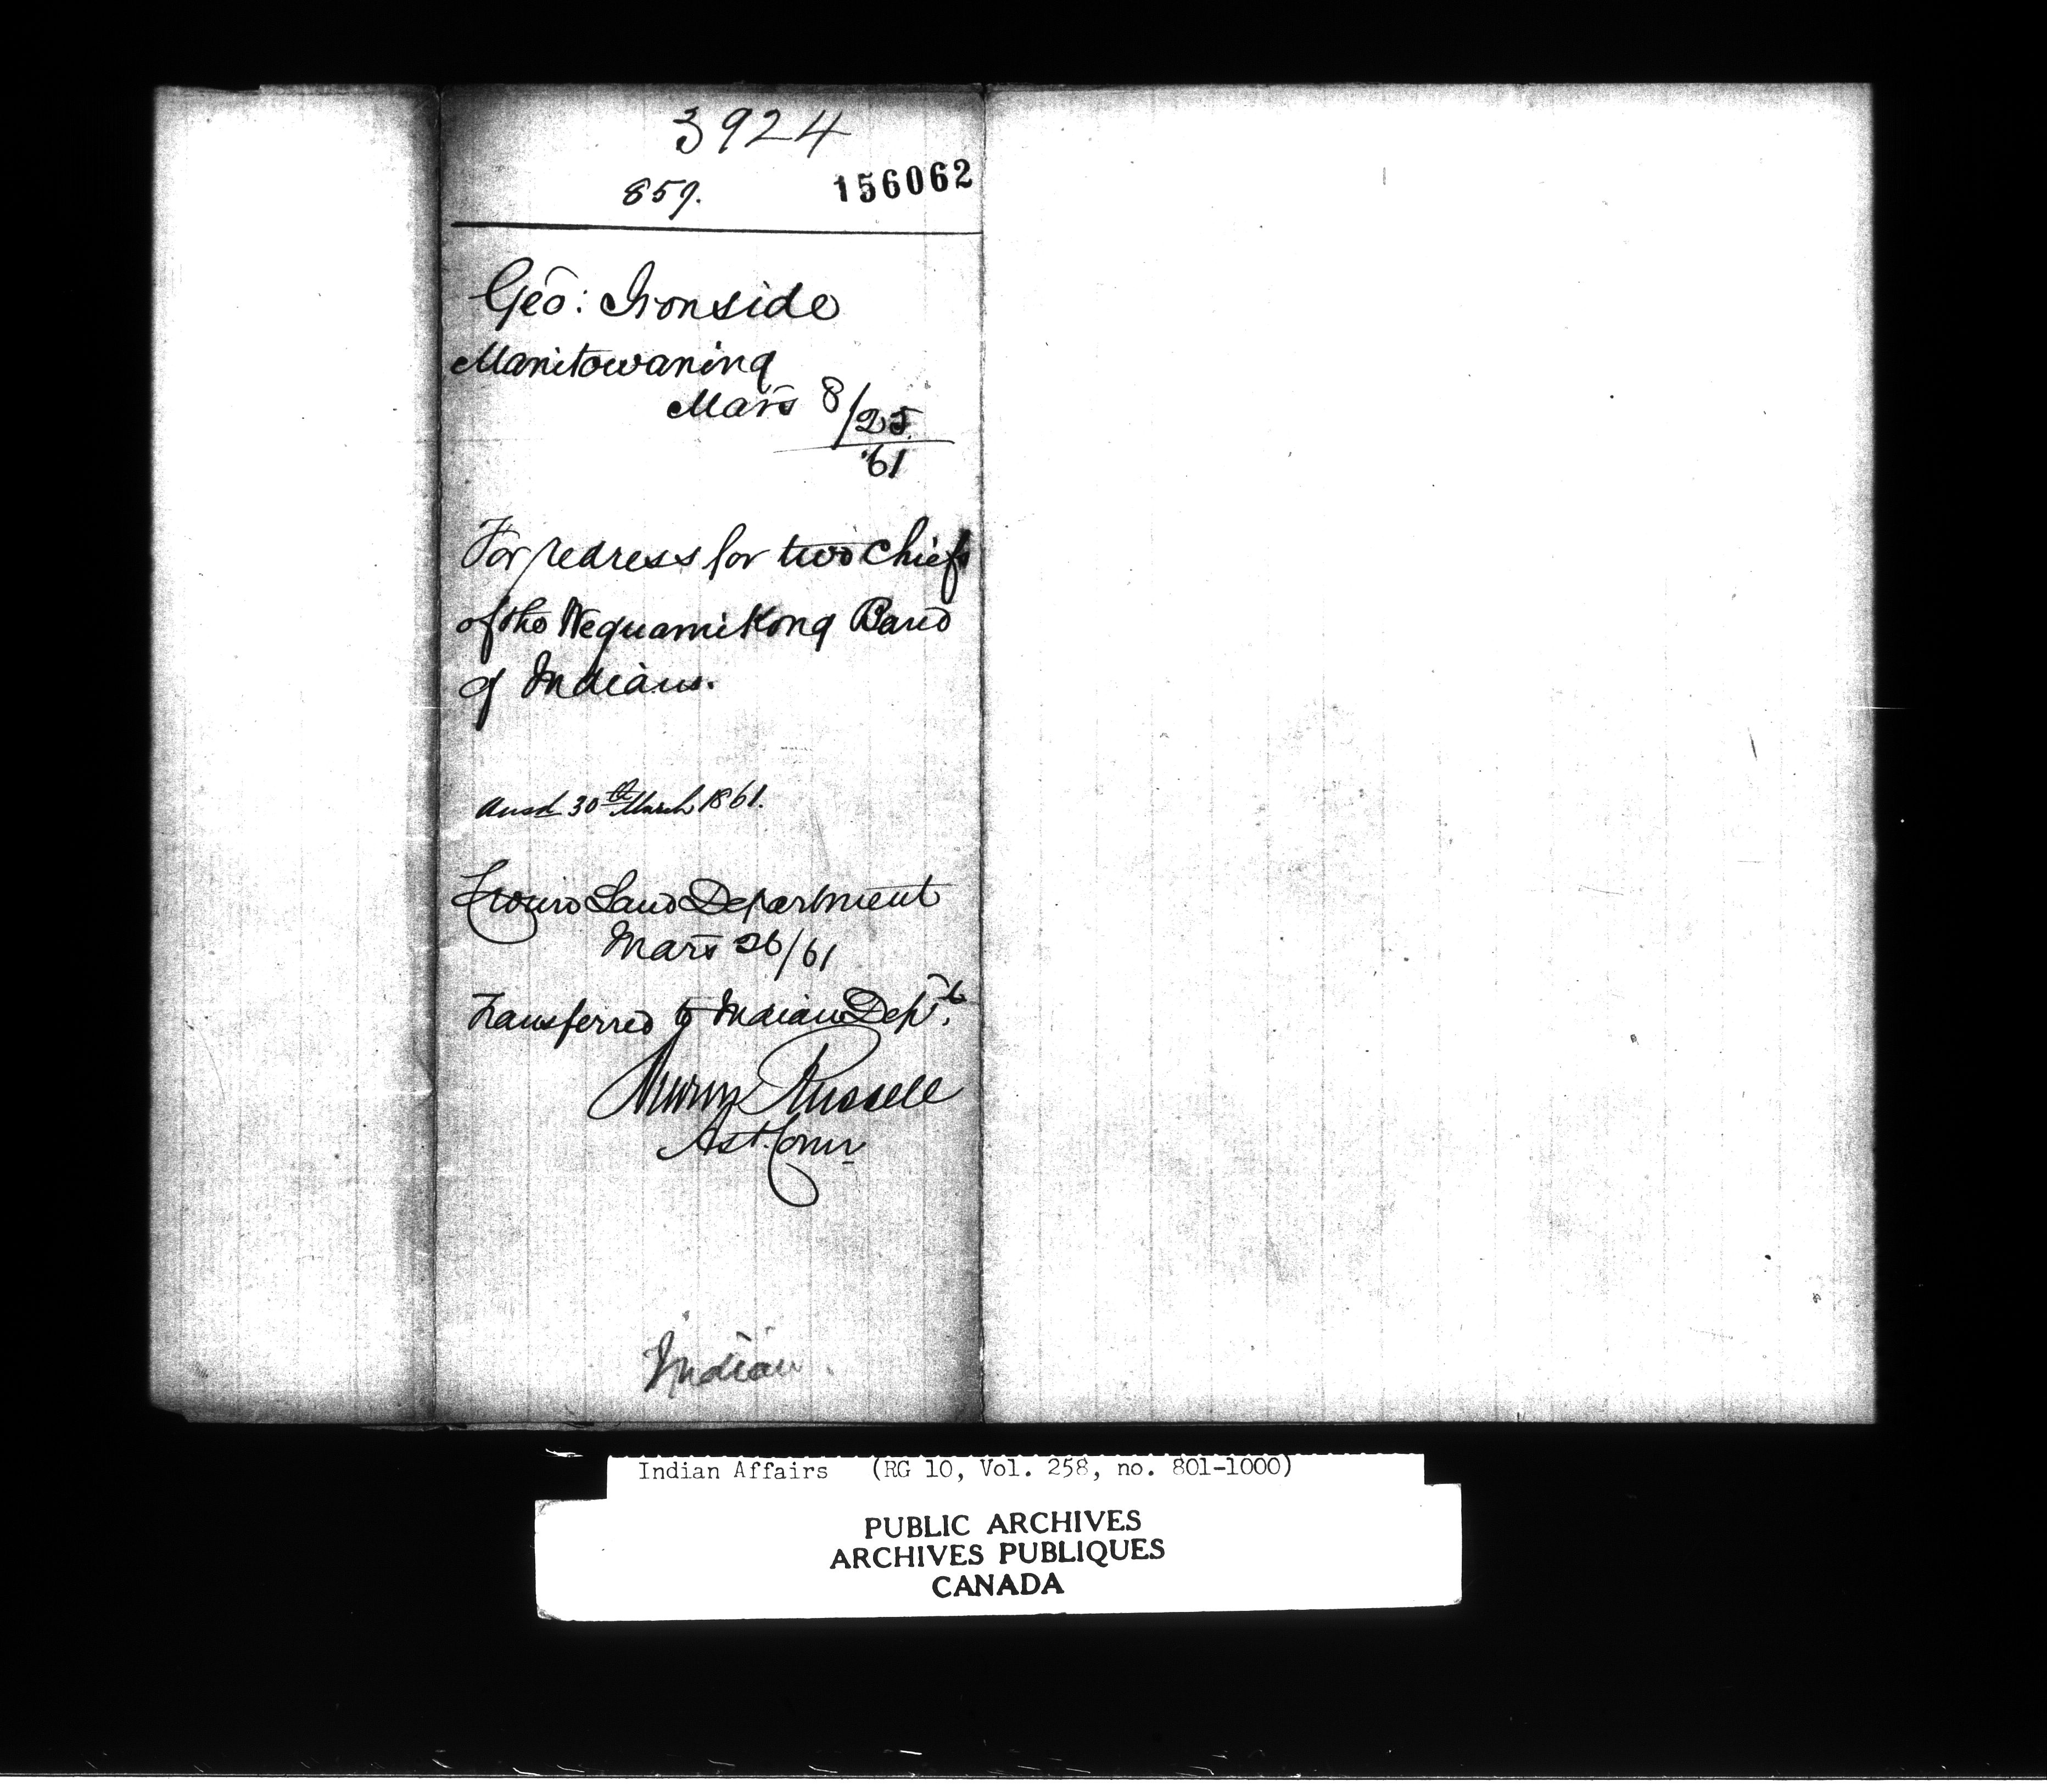 3924
859.
156062
Geo: Ironside
Manitowaning
Mar's 8/25
'61
For redress for two Chiefs
of the Wequamikong Band
of Indians.
Ansd 30th March 1861.
Crown Land Department
Mar's 26/61
Transferred to Indian Dept.
Andrew Russell
Ast. Comr
Indian
Indian Affairs (RG 10, Vol. 258, no. 801-1000)
PUBLIC ARCHIVES
ARCHIVES PUBLIQUES
CANADA